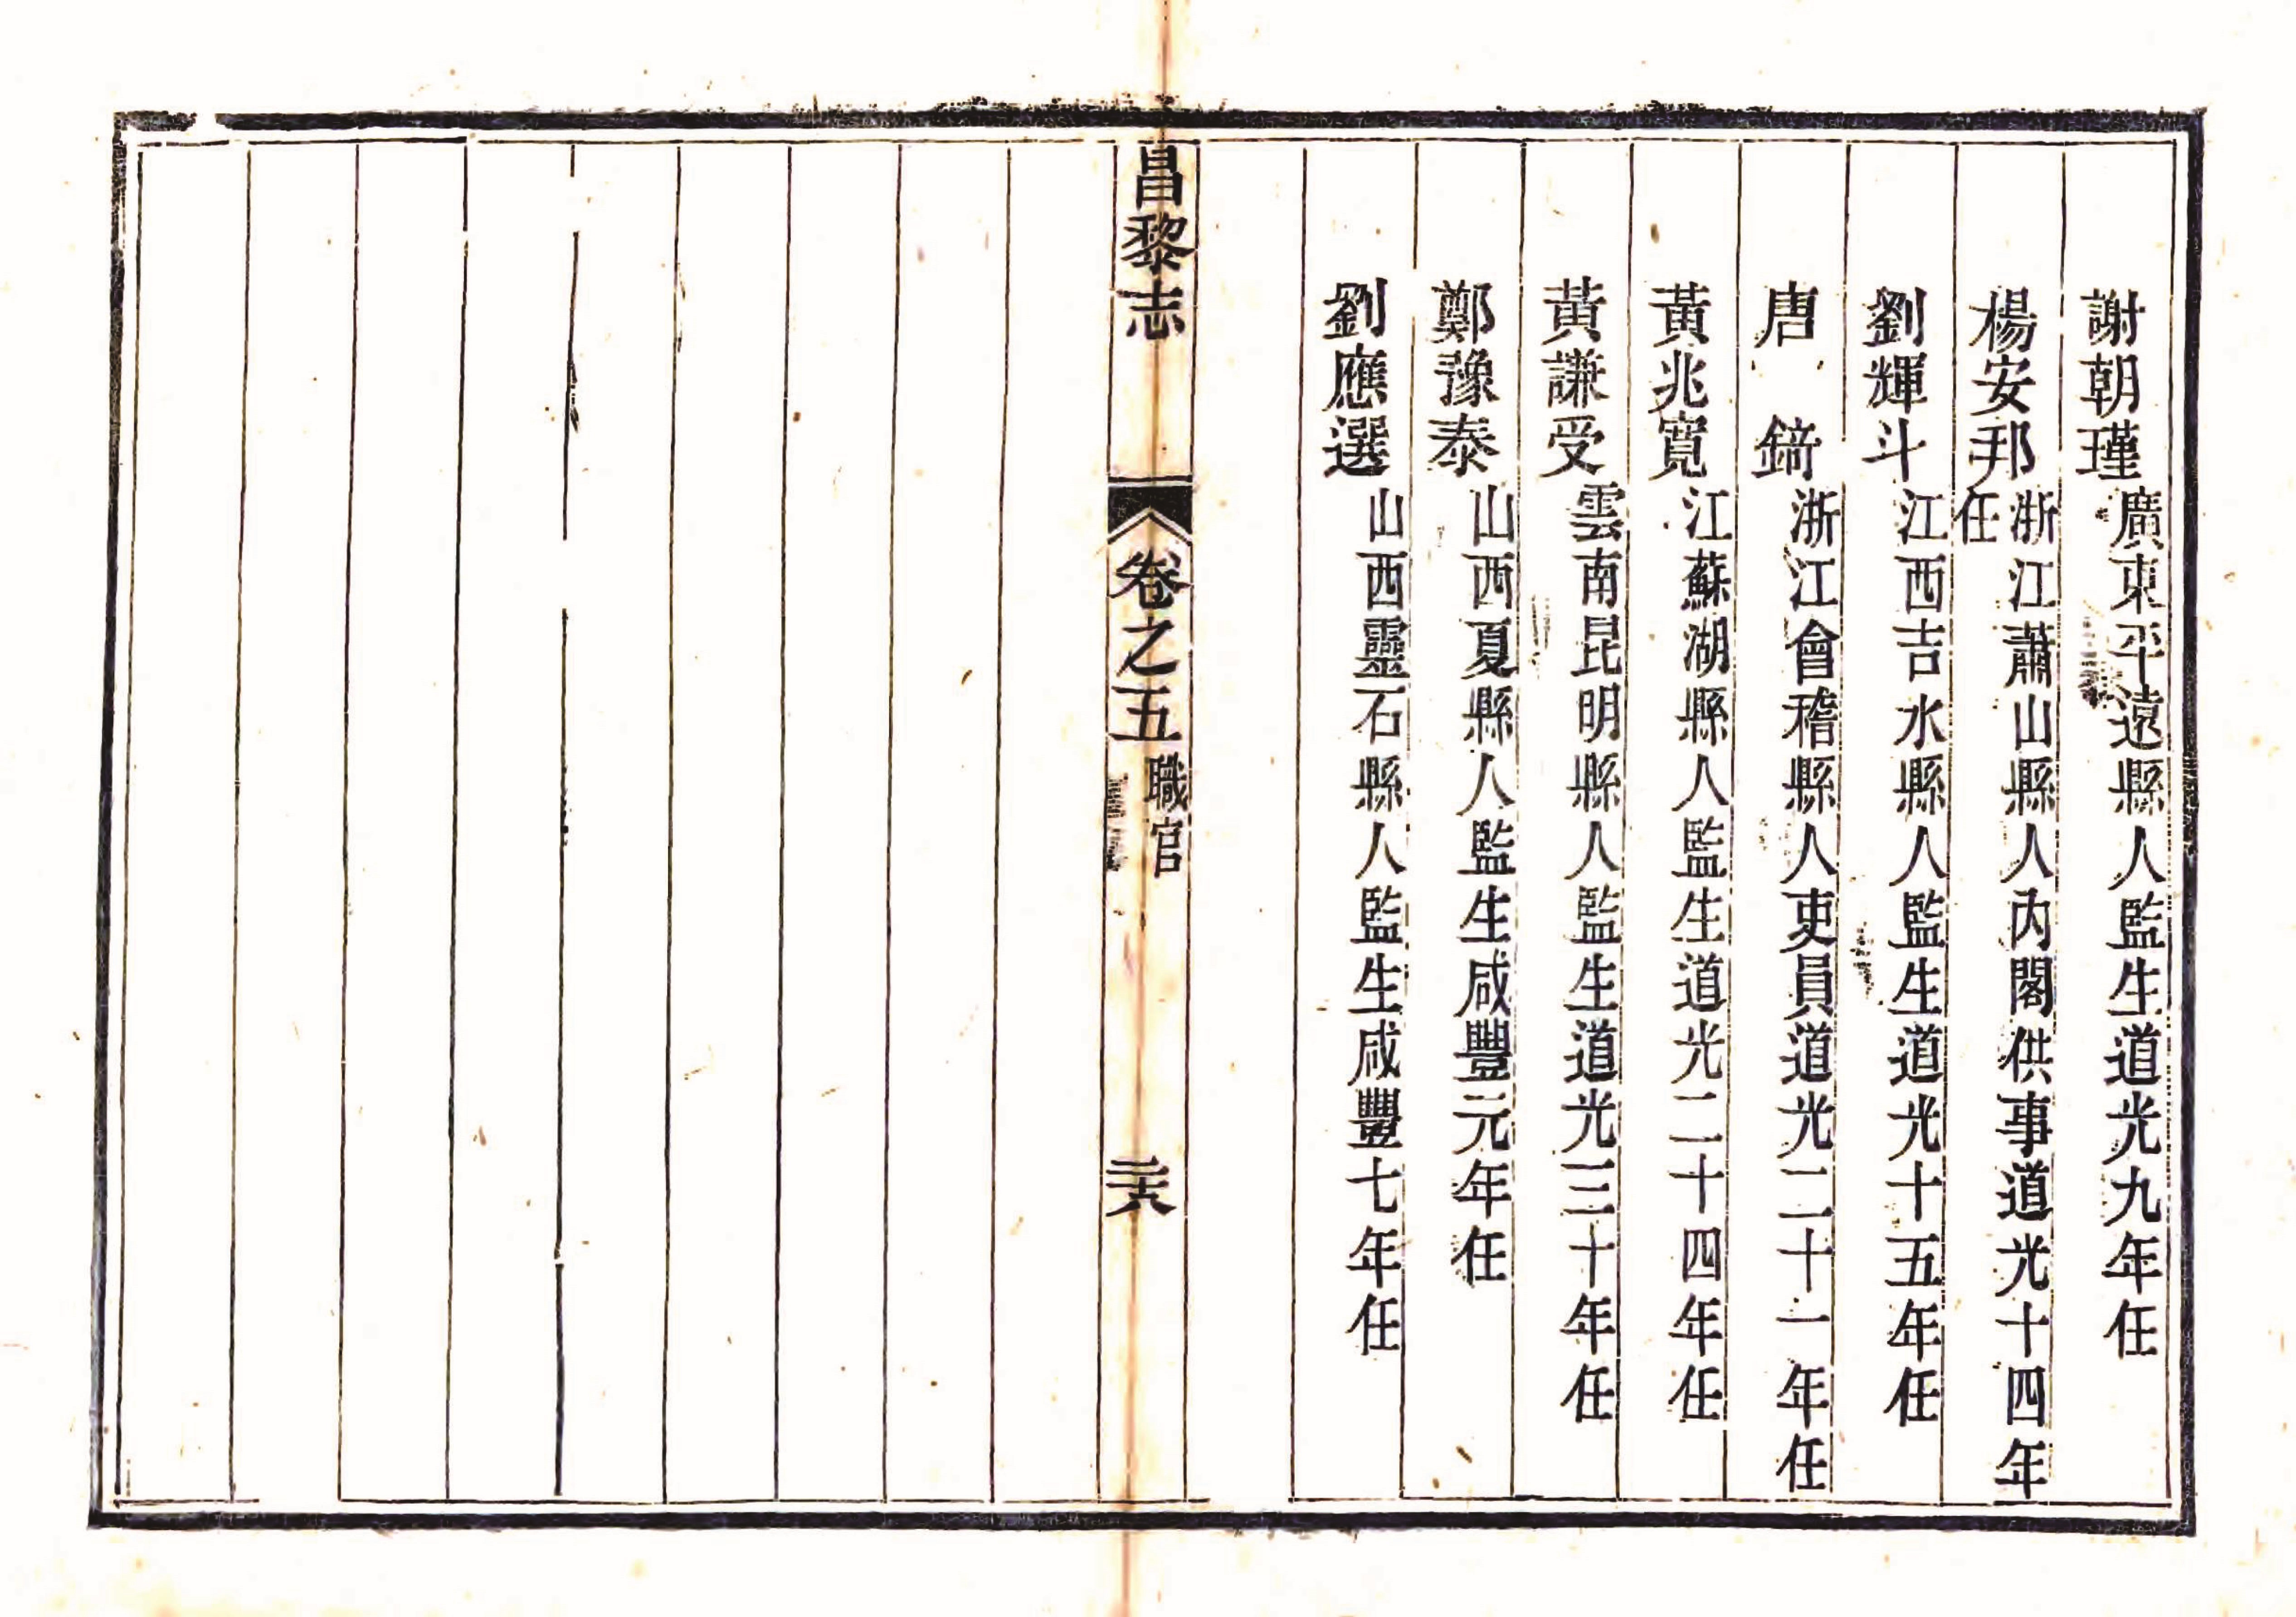 謝朝瑾廣東平遠縣人監生道光九年任
楊安邦浙江蕭山縣人內閣供事道光十四年
任
劉輝斗江西吉水縣人監生道光十五年任
唐　錡浙江會稽縣人吏員道光二十一年任
黃兆寬江蘇湖縣人監生道光二十四年任
黃謙受雲南昆明縣人監生道光三十年任
鄭豫泰山西夏縣人監生咸豐元年任
劉應選山西靈石縣人監生咸豐七年任
昌黎志　卷之五　職官　二十八